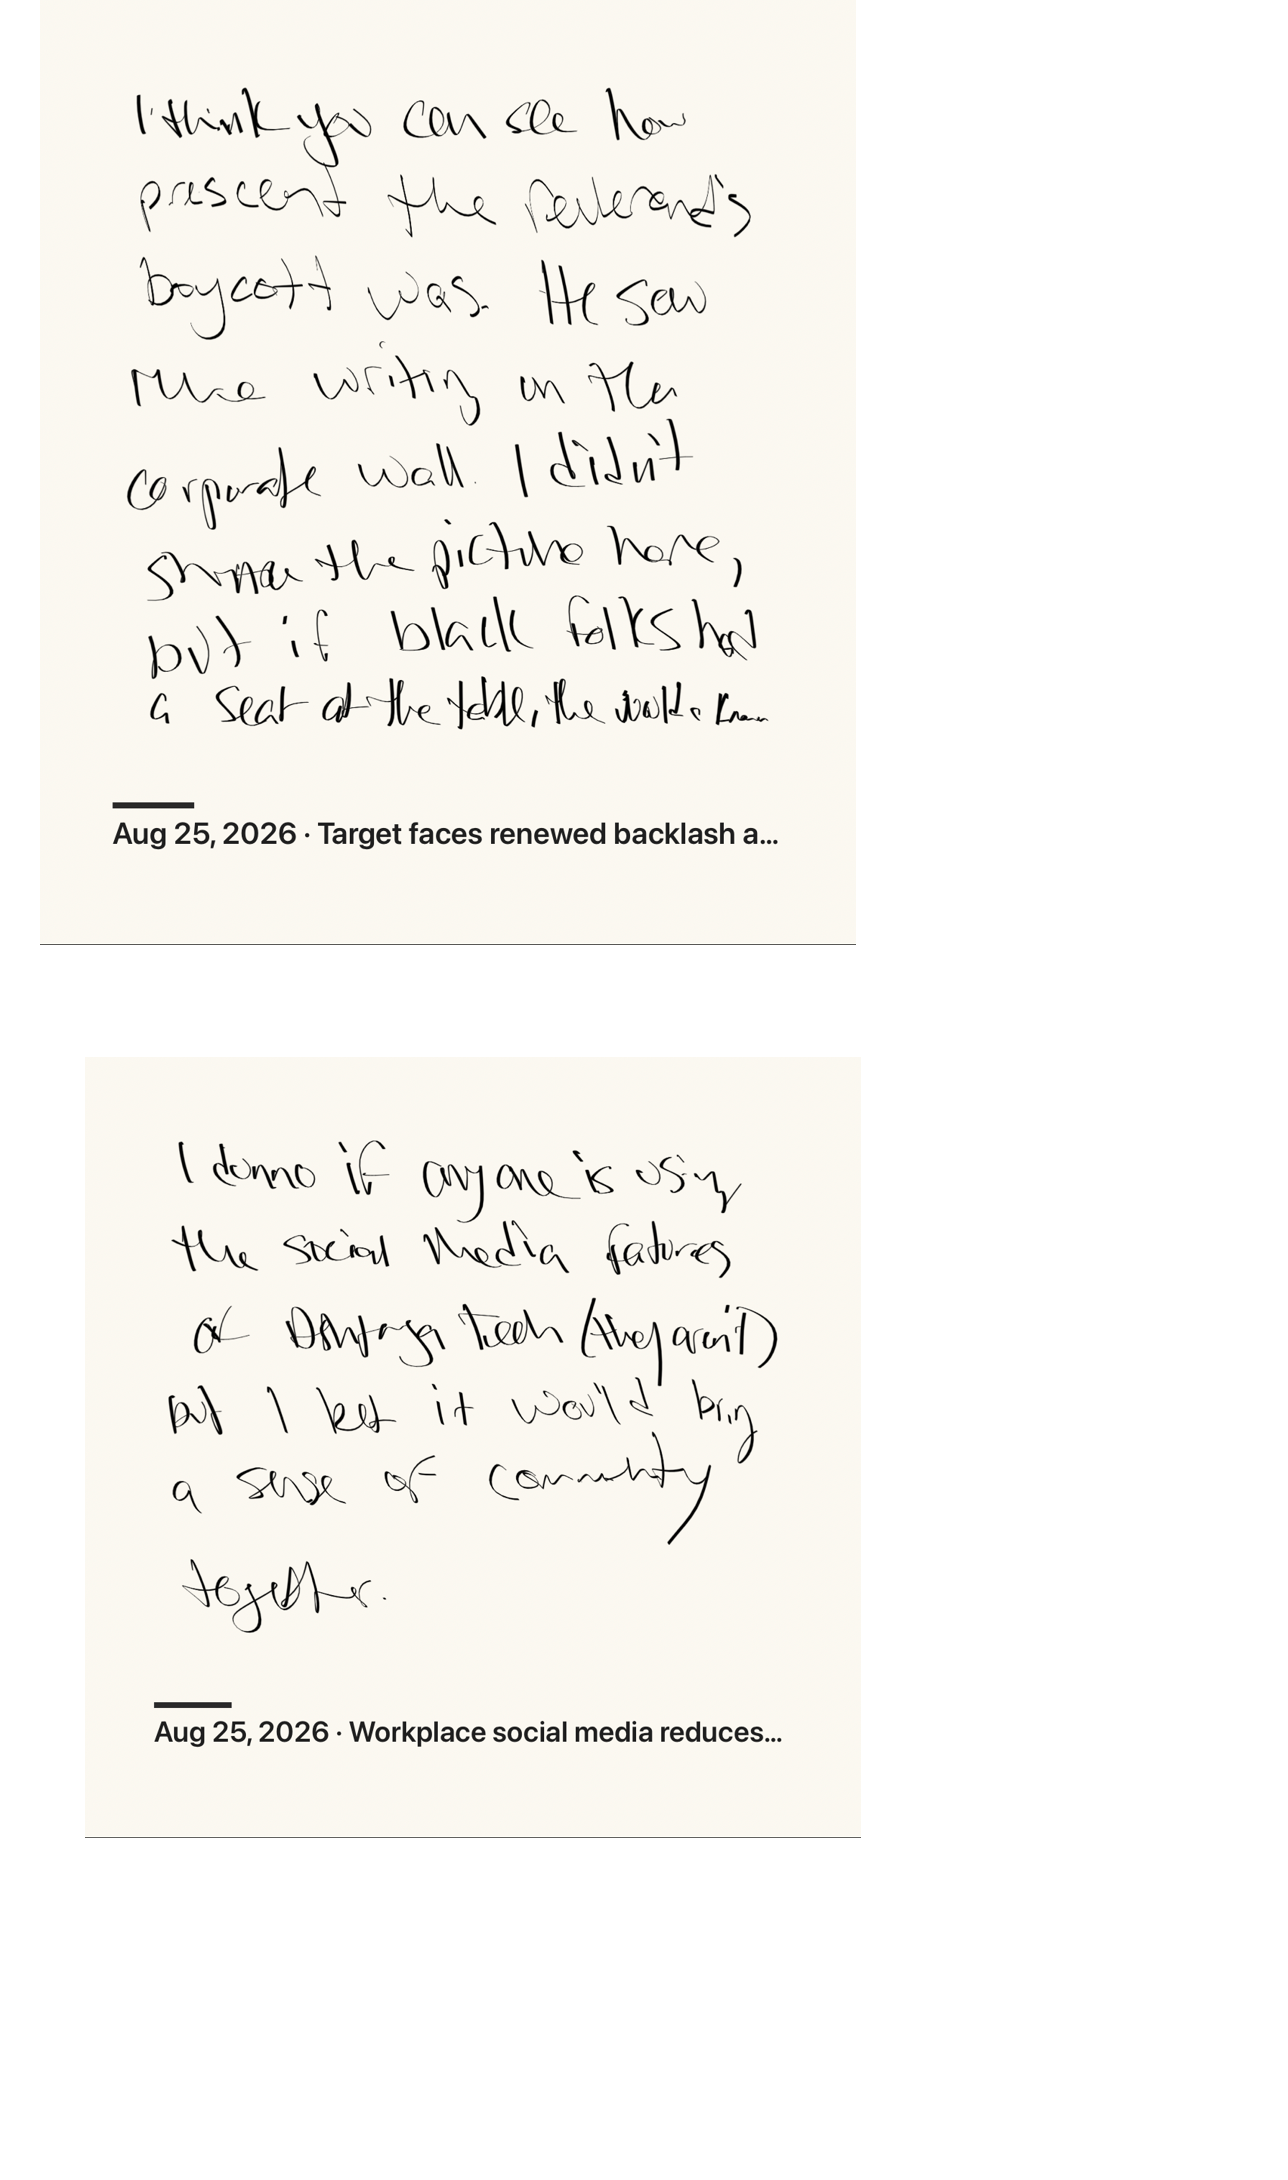 I think you can see how
prescent the Reverend's
boycott was. He saw
writing on the
corporate wall. I didn't
the picture here,
but if black folks had
a seat at the table, the would know
Aug 25, 2026 · Target faces renewed backlash a...
I donno if anyone is using
the social media features
at Tech (they aren't)
but I bet it would bring
a sense of community
together.
Aug 25, 2026 · Workplace social media reduces...